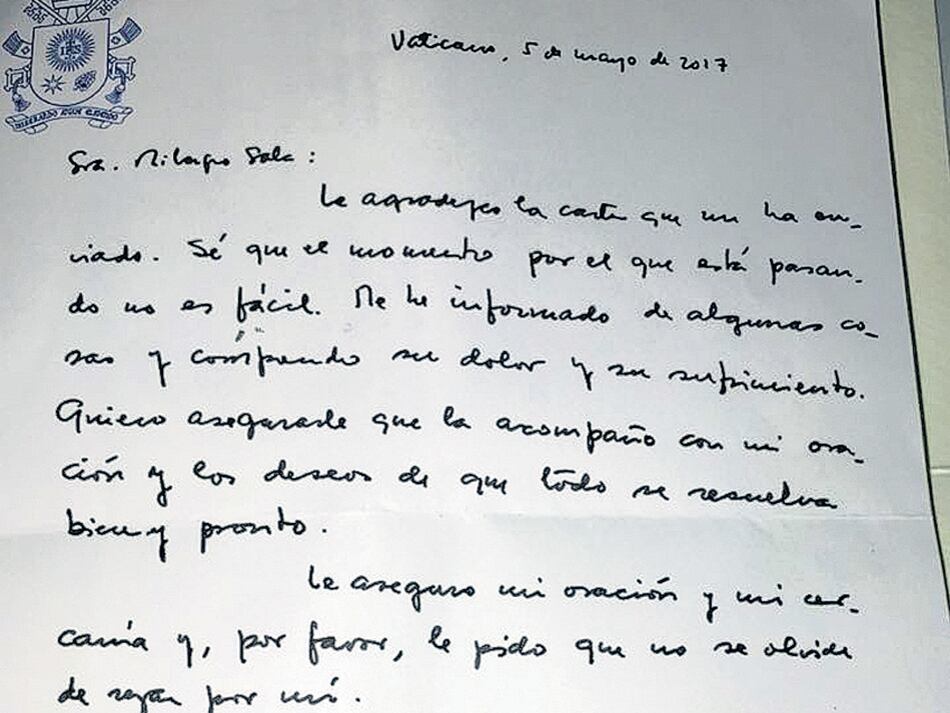 IHS
MISERANDO ATQUE ELIGENDO
Vaticano, 5 de mayo de 2017
Sra. Milagro Sala:
Le agradezco la carta que me ha en-
viado. Sé que el momento por el que está pasan-
do no es fácil. Me he informado de algunas co-
sas y comprendo su dolor y su sufrimiento.
Quiero asegurarle que la acompaño con mi ora-
ción y los deseos de que todo se resuelva
bien y pronto.
Le aseguro mi oración y mi cer-
canía y, por favor, le pido que no se olvide
de rezar por mí.